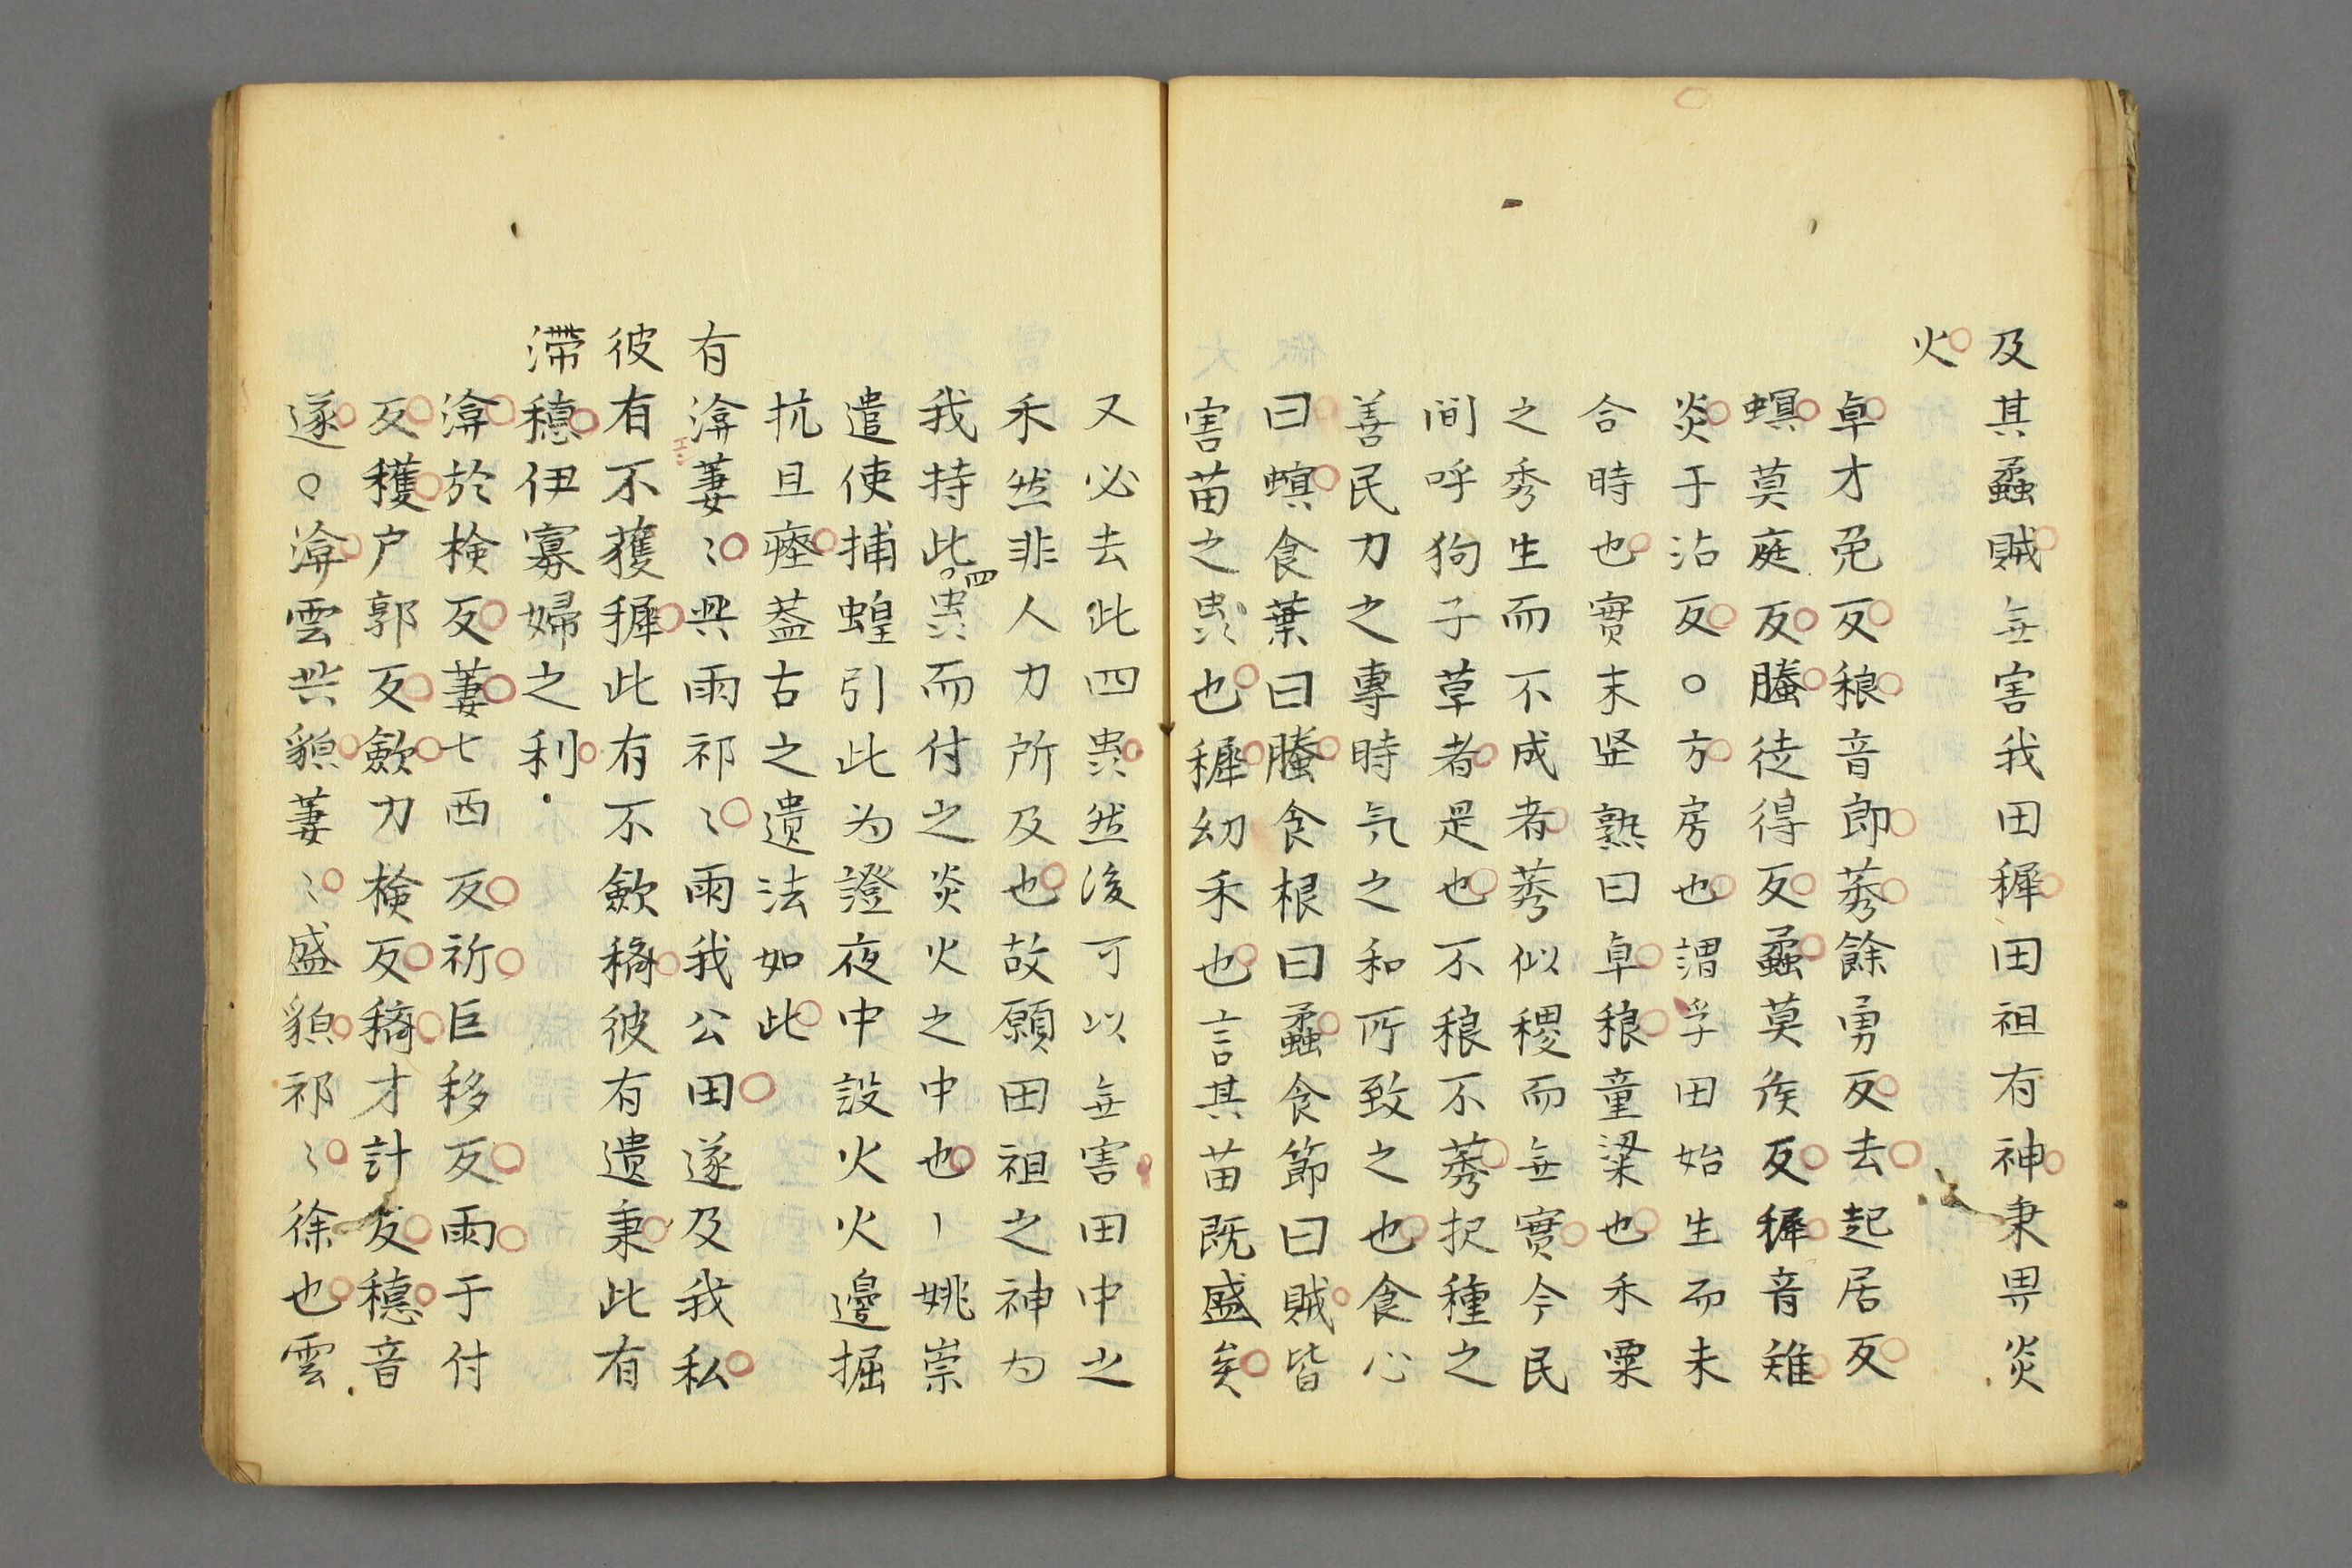 及其蟊賊無害我田穉田祖有神秉畀炎
火
卓才免反稂音郎莠餘勇反去起居反
螟莫庭反螣徒得反蟊莫侯反穉音雉
炎于沾反○方房也謂孚田始生而未
合時也實末坚熟曰卓稂童粱也禾粟
之秀生而不成者莠似稷而無實今民
间呼狗子草者是也不稂不莠択種之
善民力之專時気之和所致之也食心
曰螟食葉曰螣食根曰蟊食節曰賊皆
害苗之蟲也穉幼禾也言其苗既盛矣
又必去此四蟲然後可以無害田中之
禾然非人力所及也故願田祖之神为
我持此四蟲而付之炎火之中也姚崇
遣使捕蝗引此为證夜中設火火邊掘
抗且瘗蓋古之遗法如此
有渰萋〻興雨祁〻雨我公田遂及我私
彼有不獲穉此有不歛穧彼有遗秉此有
滯穗伊寡婦之利
渰於検反萋七西反祈巨移反雨于付
反穫户郭反歛力検反穧才計反穗音
遂○渰雲興貌萋〻盛貌祁〻徐也雲